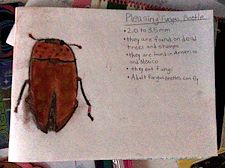 Pleasing Fungus Beetle
• 2.0 to 3.5mm
• they are found on dead
trees and stumps
• they are found in America
and Mexico
• they eat fungi
• Adult fungus beetles can fly